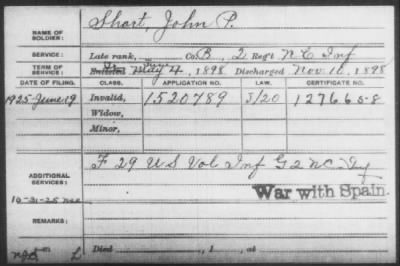 NAME OF SOLDIER: Short, John P.
SERVICE: Late rank, Co. B, 2 Reg't N. C. Inf
TERM OF SERVICE: Enlisted May 4, 1898, Discharged Nov. 10, 1898
DATE OF FILING. CLASS. APPLICATION NO. LAW. CERTIFICATE NO.
1925-June 19 Invalid, 1520789 J/20 127665-8
Widow,
Minor,
F 29 U S Vol. Inf G 2 N C Inf
ADDITIONAL SERVICES:
War with Spain.
10-31-25
REMARKS:
Died , 1 , at